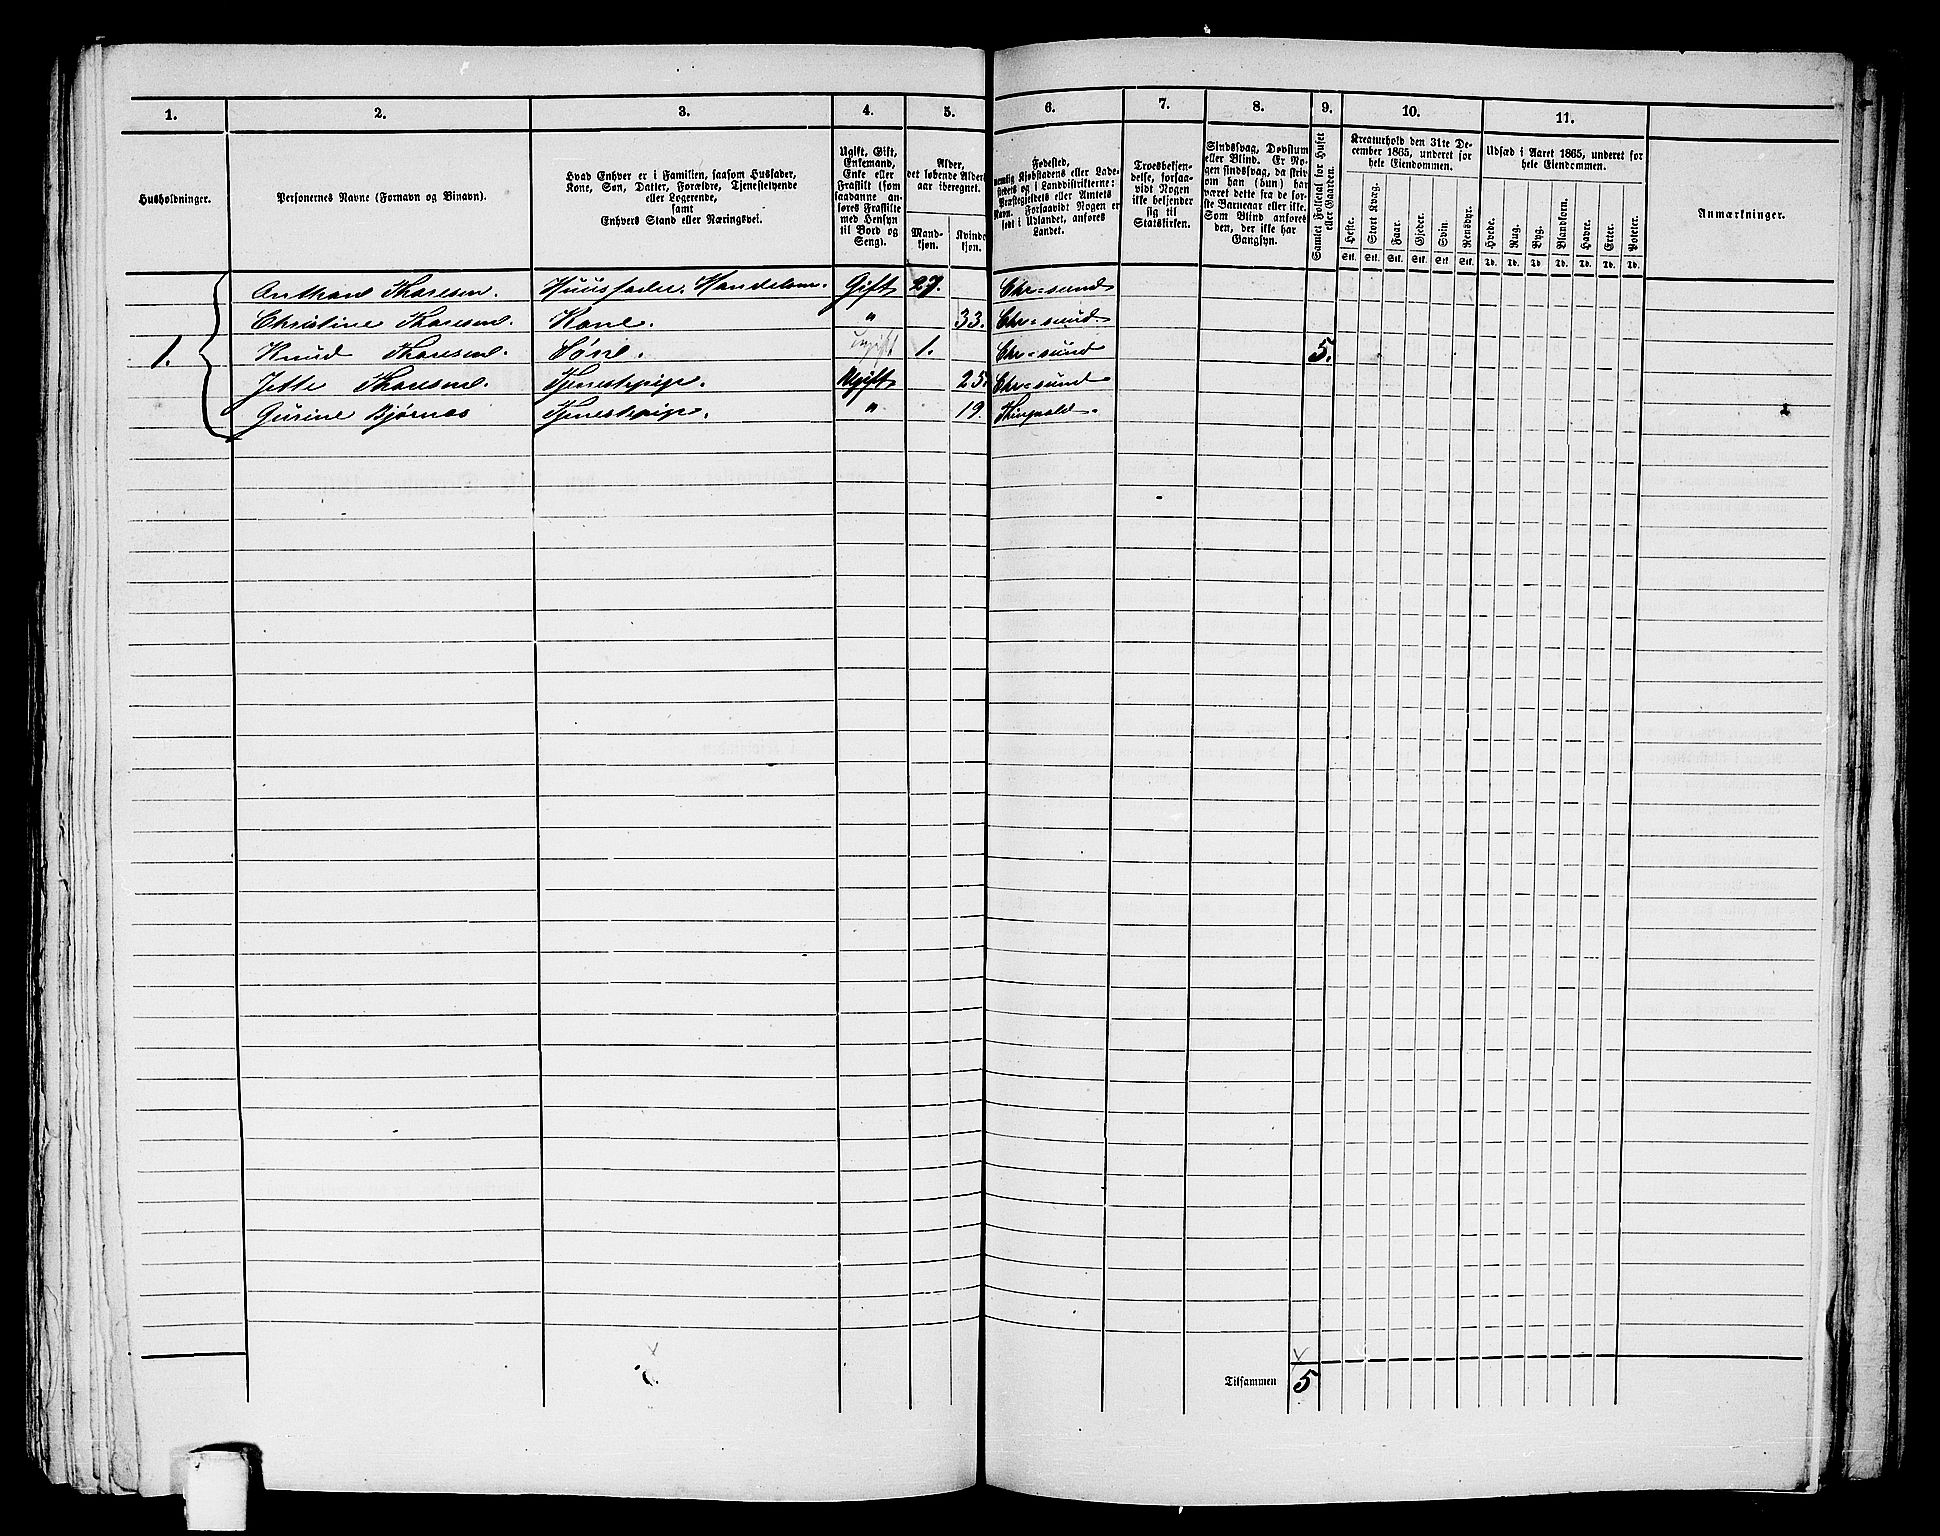 1. 2. 3. 4. 5. 6. 7. 8. 9. 10. 11.
Husholdninger.
Personernes Navne (Fornavn og Binavn).
Hvad Enhver er i Familien, saasom Husfader,
Kone, Søn, Datter, Forældre, Tjenestetyende
eller Logerende,
samt
Enhvers Stand eller Næringsvei.
Ugift, Gift,
Enkemand,
Enke eller
Fraskilt (som
saadanne an-
føres Fraskilte
med Hensyn
til Bord og
Seng).
Alder,
det løbende Alders-
aar iberegnet.
Mand-
kjøn.
Kvinde-
kjøn.
Fødested,
nemlig Kjøbstadens eller Lade-
stedets og i Landdistrikterne:
Præstegjeldets eller Amtets
Navn. Forsaavidt Nogen er
født i Udlandet, anføres
Landet.
Troesbekjen-
delse, forsaa-
vidt Nogen
ikke bekjender
sig til
Statskirken.
Sindssvag, Døvstum
eller Blind. Er No-
gen sindssvag, da skriv
om han (hun) har
været dette fra de før-
ste Barneaar eller ikke.
Som Blind anføres
den, der ikke har
Gangsyn.
Samlet Folketal for Huset
eller Gaarden.
Kreaturhold den 31te De-
cember 1865, underet for
hele Eiendommen.
Heste. Stort Kvæg. Faar. Gjeder. Svin. Rensdyr.
Stk. Stk. Stk. Stk. Stk. Stk.
Udsæd i Aaret 1865, underet for
hele Eiendommen.
Hvede. Rug. Byg. Blandkorn. Havre. Erter. Poteter.
Td. Td. Td. Td. Td. Td. Td.
Anmærkninger.
Thoresen. Huusfader. Handelsm. Gift 27. Chr=sund
Christine Thoresen. Kone. " 33. Chr=sund.
1. Knud Thoresen. Søn. ugift 1. Chr=sund 5.
Jette Thoresen. Tjenestepige. Ugift 25. Chr=sund
Gurine Bjørnas Tjenestepige. " 19. Thingvold.
Tilsammen 5